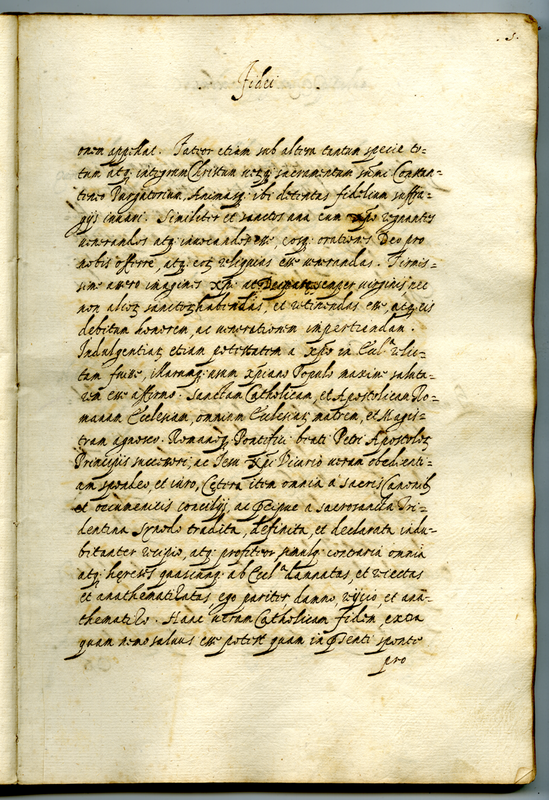 5.
Fidei
onem appellat. Fateor etiam sub altera tantum specie to-
tum atq; integrum Christum verumq; sacramentum sumi Constan-
tero Purgatorium, Animasq; ibi detentas fidelium suffra-
gijs iuuari. Similiter et sanctos una cum xpo regnantes
venerandos atq; inuocandos esse, eosq; orationes Deo pro
nobis offerre, atq; eor reliquias esse venerandas. Firmis-
sime assero imagines xpi ac Deiparæ semper virginis nec
non alior sanctor habendas, et retinendas esse, atq; eis
debitum honorem, ac venerationem impertiendam.
Indulgentiar etiam potestatem a xpo in Eccl.a relic-
tam fuisse, illarumq; usum xpiano Populo maxime saluta-
rem esse affirmo. Sanctam Catholicam, et Apostolicam Ro-
manam Ecclesiam, omnium Ecclesiar matrem, et Magis-
tram agnosco. Romanoq; Pontifici beati Petri Apostolor
Principis successori, ac Jesu Xpi Vicario veram obedienti-
am spondeo, et iuro, Cetera item omnia a sacris Canonib;
et oecumenicis concilijs, ac pcipue a sacrosancta Tri-
dentina Synodo tradita, definita, et declarata indu-
bitanter recipio, atq; profiteor simulq; contraria omnia
atq; hereses quascunq; ab Eccl.a damnatas, et reiectas
et anathematizatas ego pariter damno, reijcio, et ana-
thematizo. Hanc veram Catholicam fidem, extra
quam nemo saluus esse potest quam in psenti sponte
pro